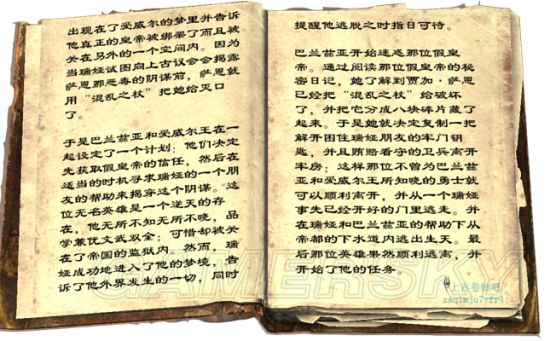 出现在了爱威尔的梦里并告诉
他真正的皇帝被绑架了而且被
关在另外的一个空间内。因为
当瑞娅试图向上古议会会揭露
萨恩那恶毒的阴谋前，萨恩就
用“混乱之杖”把她给灭口
了。
于是巴兰兹亚和爱威尔王在一
起设定了一个计划；他们决定
先获取假皇帝的信任，然后在
适当的时机寻求瑞娅的一个朋
友的帮助来揭穿这个阴谋。这
位无名英雄是一个逆天的存
在，他无所不知无所不晓，品
学兼优文武双全；可惜却被关
在了帝国的监狱内。然而，瑞
娅成功地进入了他的梦境，告
诉了他外界发生的一切，同时
提醒他逃脱之时指日可待。
巴兰兹亚开始迷惑那位假皇
帝。通过阅读那位假皇帝的秘
密日记，她了解到贾加·萨恩
已经把“混乱之杖”给破坏
了，并把它分成八块碎片藏了
起来。于是她就决定复制一把
解开困住瑞娅朋友的牢门钥
匙，并且贿赂看守的卫兵离开
牢房；这样那位不曾为巴兰兹
亚和爱威尔王所知晓的勇士就
可以顺利离开，并从一个瑞娅
事先已经开好的门里逃走。并
在瑞娅和巴兰兹亚的帮助下从
帝都的下水道内逃出生天。最
后那位英雄果然顺利逃离，并
开始了他的任务。
上古卷轴吧
zaqimju7vfr4
GAMERSKY